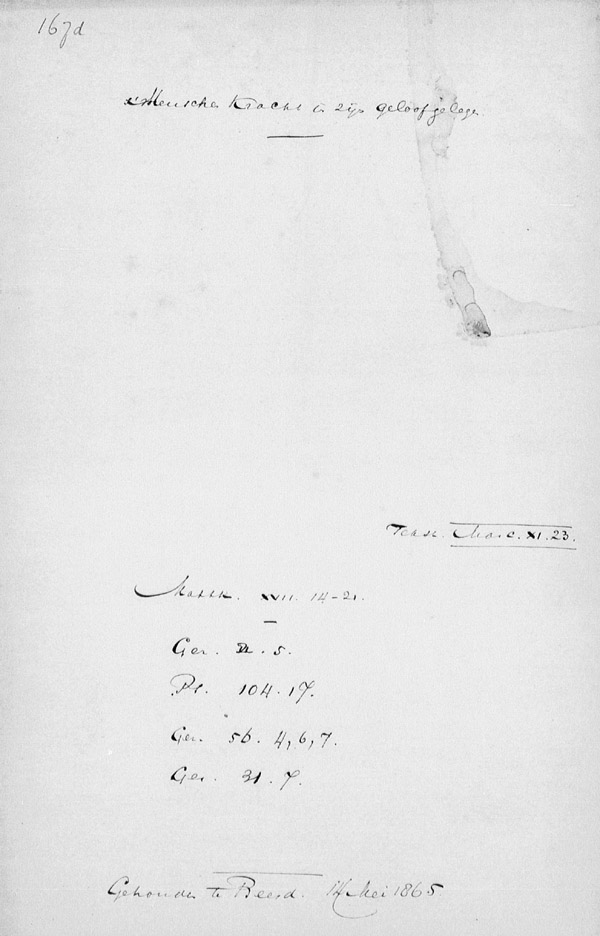 167d
's Menschen Kracht in zijn geloof gelegen
Tekst. Marc. XI. 23.
Matth. XVII. 14-21.
Gez. 21. 5.
Ps. 104. 17.
Gez. 56. 4, 6, 7.
Gez. 31. 7.
Gehouden te Beesd. 14 Mei 1865